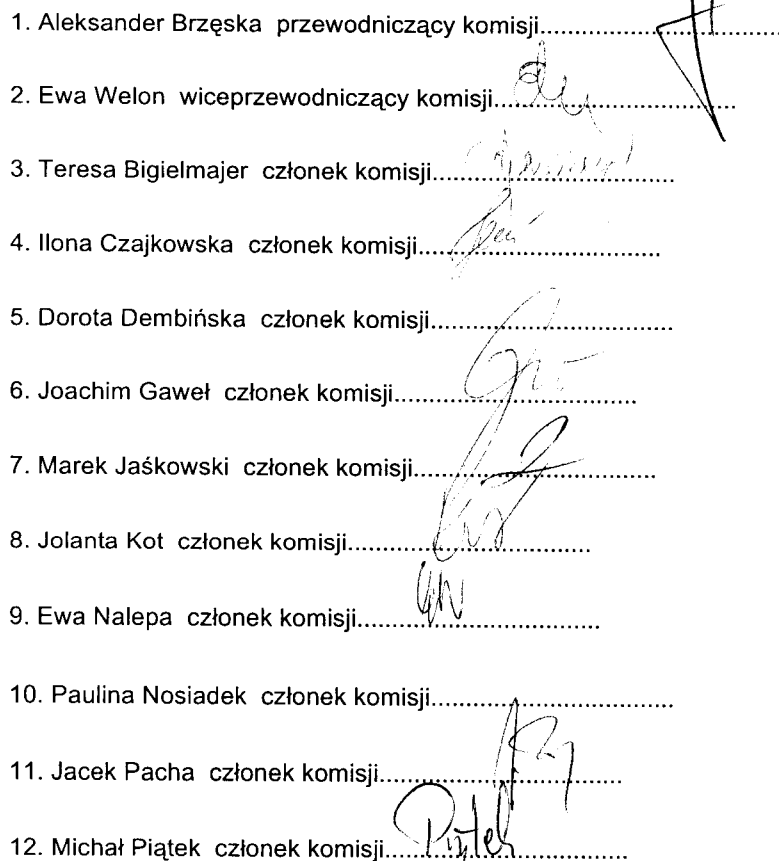 1. Aleksander Brzęska przewodniczący komisji........................................
2. Ewa Welon wiceprzewodniczący komisji........................................
3. Teresa Bigielmajer członek komisji........................................
4. Ilona Czajkowska członek komisji........................................
5. Dorota Dembińska członek komisji........................................
6. Joachim Gaweł członek komisji........................................
7. Marek Jaśkowski członek komisji........................................
8. Jolanta Kot członek komisji........................................
9. Ewa Nalepa członek komisji........................................
10. Paulina Nosiadek członek komisji........................................
11. Jacek Pacha członek komisji........................................
12. Michał Piątek członek komisji........................................ Piątek